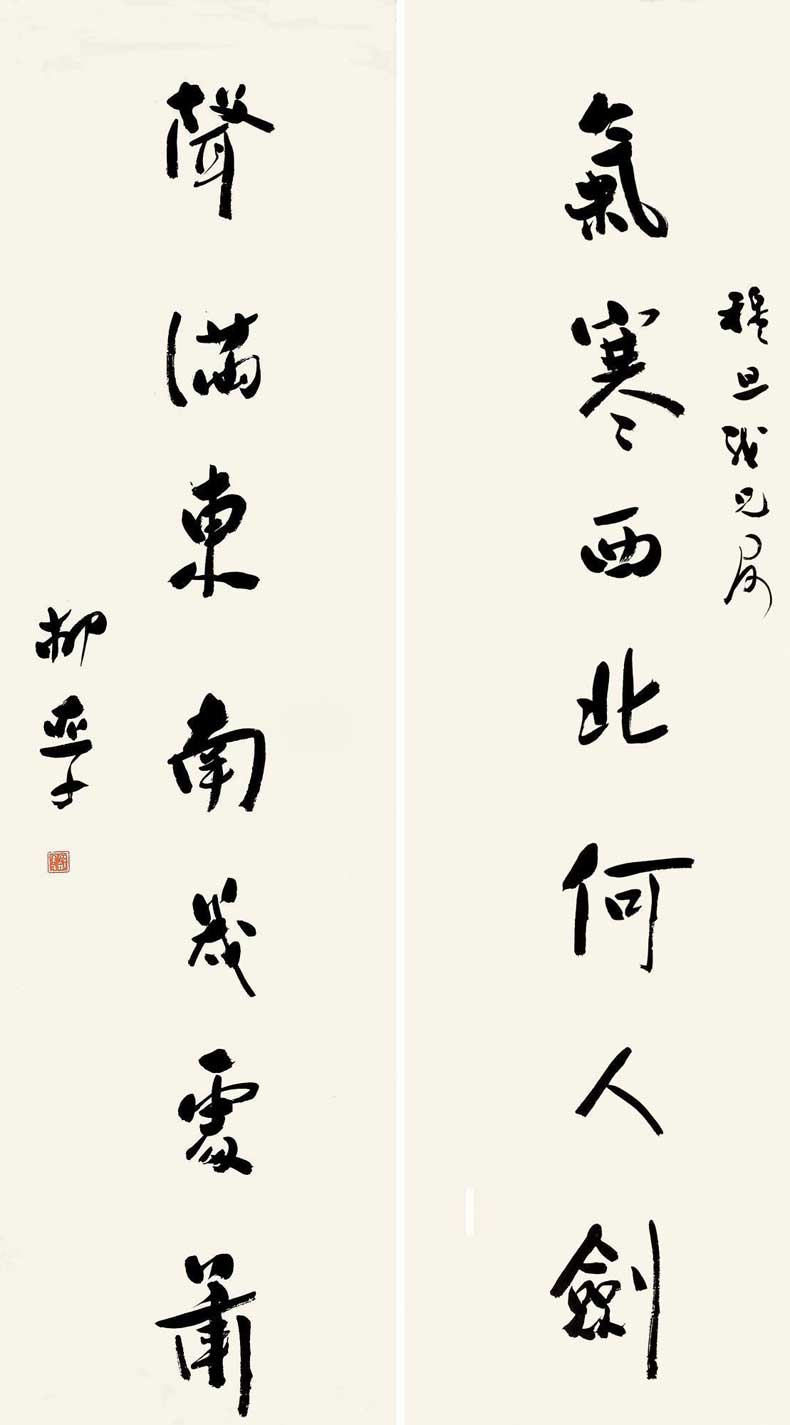 穆旦我兄屬
氣寒西北何人劍
聲滿東南幾處簫
柳亞子